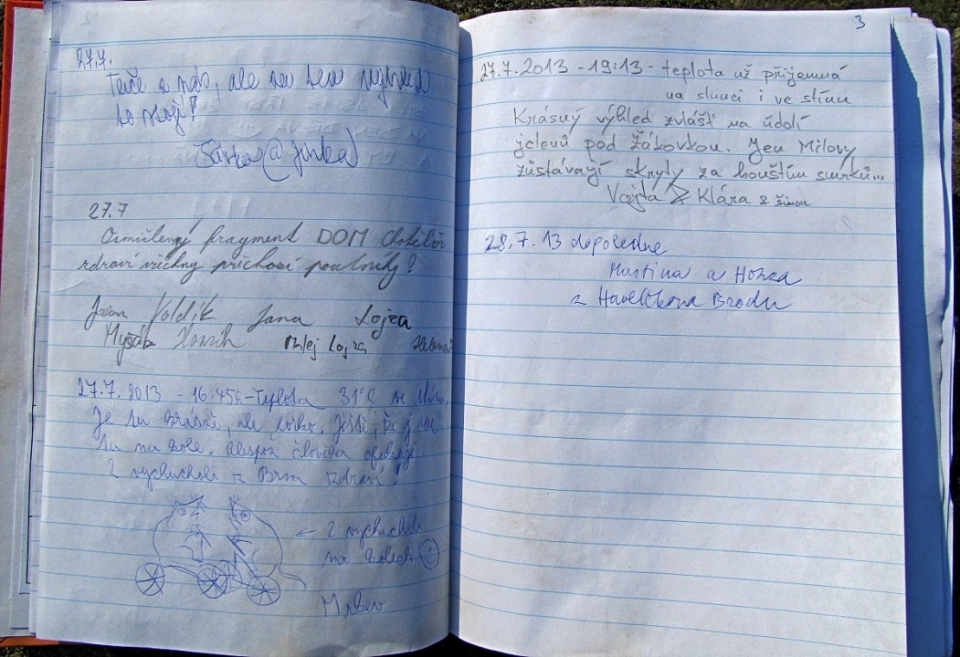 27.7.
Teče z nás, ale za ten výhled
to stojí!
27.7
fragment DOM
zdraví všechny příchozí poutníky!
Jana Lojza
Mlej Lojza Helena
27.7.2013 - 16:45h - Teplota 31°C ve stínu.
Je tu krásně, ale horko. Ještě, že je
tu na kole, alespoň člověka
2 vychucholi z Brna zdraví!
← 2 vychucholi
na kolech
3
27.7.2013 - 19:13 - teplota už příjemná
na slunci i ve stínu
Krásný výhled zvlášť na údolí
jelenů pod Žákovkou. Jen Milovy
zůstávají skryty za houštím smrků...
Vojta & Klára & Šimon
28.7.13 dopoledne
Martina a Honza
z Havlíčkova Brodu